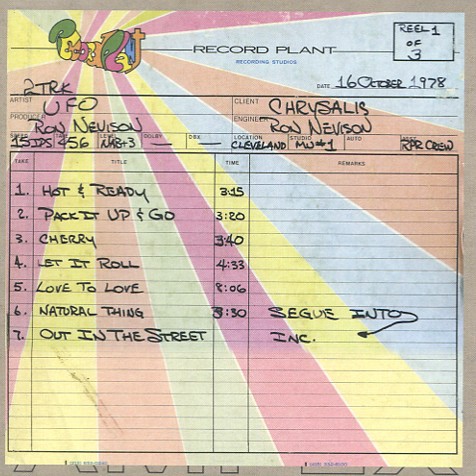 Record Plant
RECORD PLANT
RECORDING STUDIOS
REEL 1
OF
3
2TRK
DATE 16 OCTOBER 1978
ARTIST UFO CLIENT CHRYSALIS
PRODUCER RON NEVISON ENGINEER RON NEVISON
15 IPS 456 LEVEL NAB+3 DOLBY — DBX — LOCATION CLEVELAND STUDIO MU#1 AUTO ASST RPR CREW
TAKE TITLE TIME REMARKS
1. HOT & READY 3:15
2. PACK IT UP & GO 3:20
3. CHERRY 3:40
4. LET IT ROLL 4:33
5. LOVE TO LOVE 8:06
6. NATURAL THING 3:30 SEGUE INTO
7. OUT IN THE STREET INC.